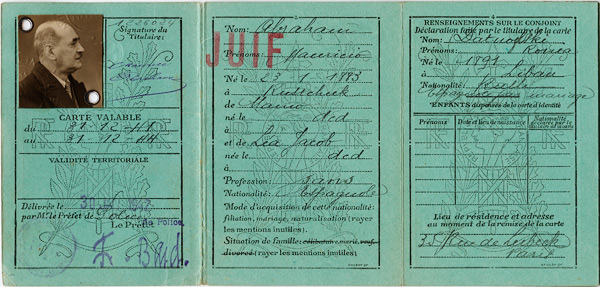 Signature
du
Titulaire:
CARTE VALABLE
du 31-12-41
au 31-12-44
VALIDITÉ TERRITORIALE
Délivrée le
par M. le Préfet de Police
Le Préfet
JUIF
Nom: Abraham
Prénoms: Mauricio
Né le 23 1 1883
à Rustschuck
de
né de dcd
et de Léa Jacob
née le dcd
à
Profession: sans
Nationalité: Espagnole
Mode d'acquisition de cette nationalité:
filiation, mariage, naturalisation (rayer
les mentions inutiles).
Situation de famille: célibataire, marié, veuf,
divorcé (rayer les mentions inutiles).
RENSEIGNEMENTS SUR LE CONJOINT
Déclaration faite par le titulaire de la carte
Nom:
Prénoms:
Né le 1891
à Libau
Nationalité: Russe
Espagnole par mariage
ENFANTS dispensés de la carte d'identité
Prénoms
Date et lieu de naissance
Nationalité
Lieu de résidence et adresse
au moment de la remise de la carte
35 Rue de Lubeck
Paris